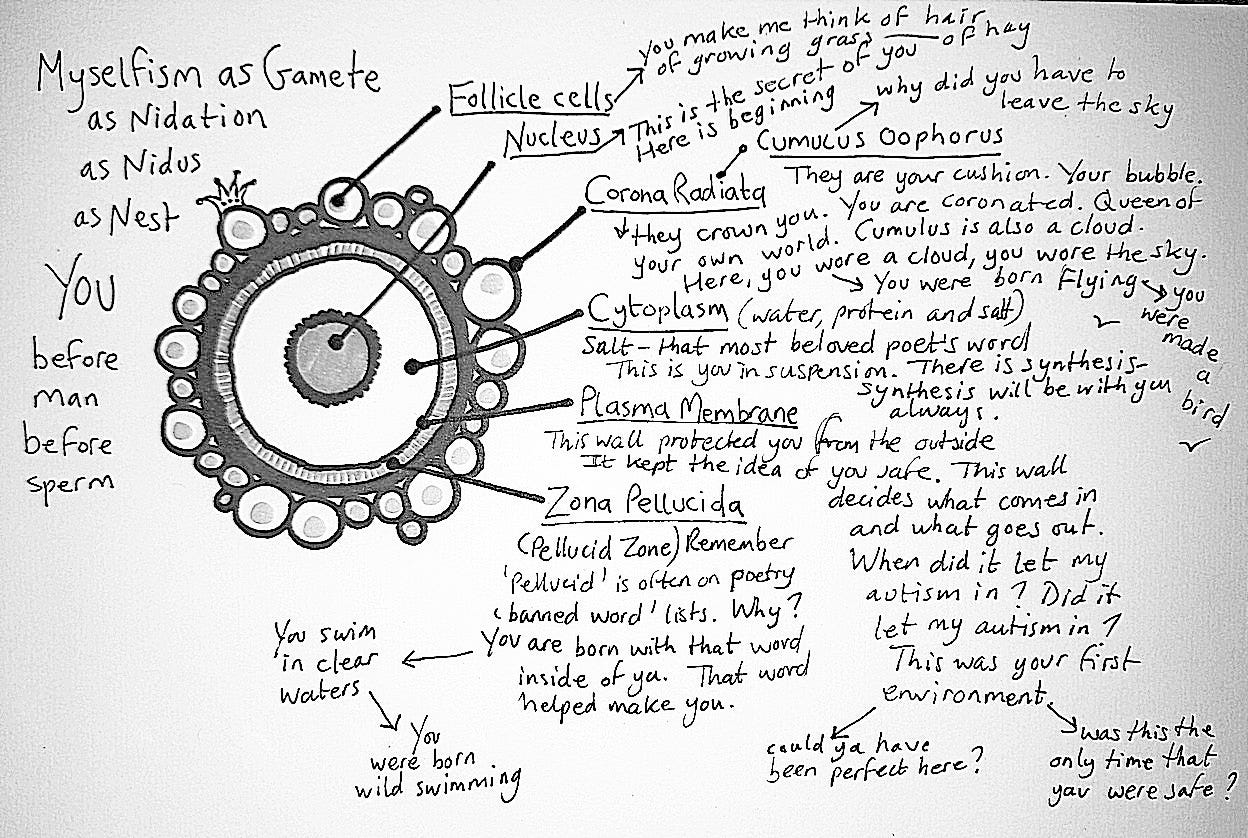 Myselfism as Gamete
as Nidation
as Nidus
as Nest
You
before
man
before
sperm
Follicle cells
You make me think of hair
of growing grass — of hay
Nucleus
This is the secret of you
Here is beginning
Cumulus Oophorus
why did you have to
leave the sky
They are your cushion. Your bubble.
Corona Radiata
they crown you. You are coronated. Queen of
your own world. Cumulus is also a cloud.
Here, you wore a cloud, you wore the sky.
You were born Flying
you
were
made
a
bird
Cytoplasm (water, protein and salt)
Salt – that most beloved poet's word
This is you in suspension. There is synthesis–
synthesis will be with you
always.
Plasma Membrane
This wall protected you from the outside
It kept the idea of you safe. This wall
decides what comes in
and what goes out.
When did it let my
autism in? Did it
let my autism in?
This was your first
environment.
could ya have
been perfect here?
was this the
only time that
you were safe?
Zona Pellucida
(Pellucid Zone) Remember
'Pellucid' is often on poetry
'banned word' lists. Why?
You are born with that word
inside of ya. That word
helped make you.
You swim
in clear
waters
You
were born
wild swimming